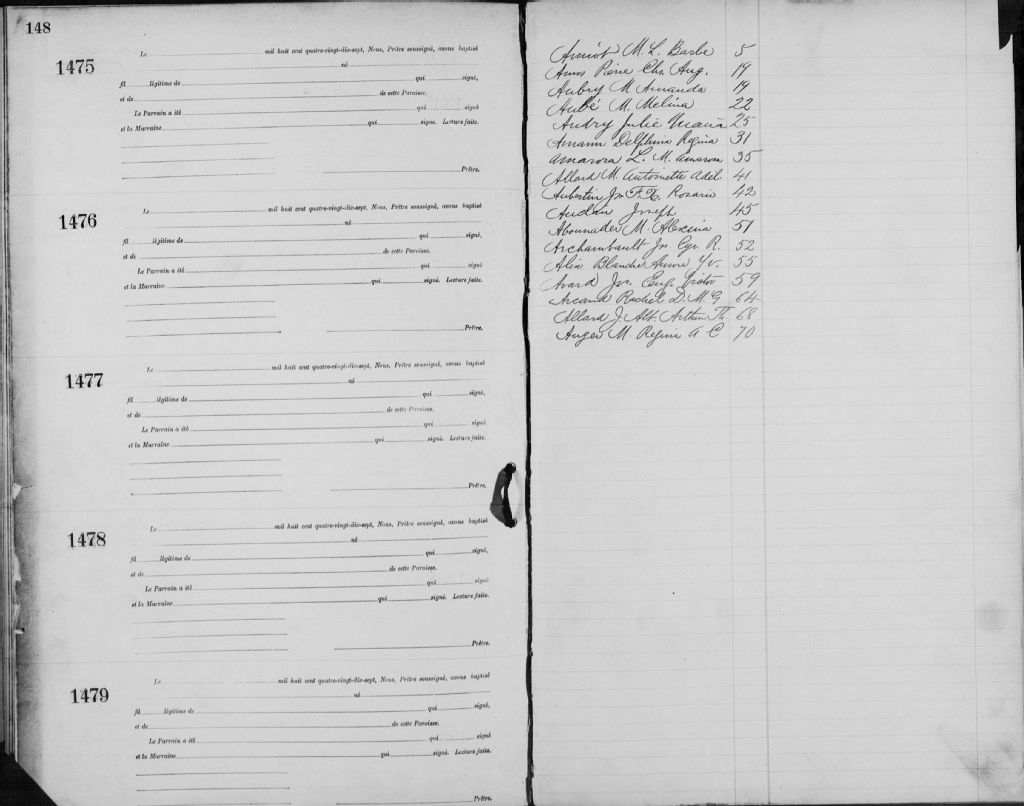 148
1475
Le mil huit cent quatre-vingt-dix-sept, Nous, Prêtre soussigné, avons baptisé
né
fil légitime de qui signé,
et de de cette Paroisse.
Le Parrain a été qui signé
et la Marraine qui signé. Lecture faite.
Prêtre.
1476
Le mil huit cent quatre-vingt-dix-sept, Nous, Prêtre soussigné, avons baptisé
né
fil légitime de qui signé,
et de de cette Paroisse.
Le Parrain a été qui signé
et la Marraine qui signé. Lecture faite.
Prêtre.
1477
Le mil huit cent quatre-vingt-dix-sept, Nous, Prêtre soussigné, avons baptisé
né
fil légitime de qui signé,
et de de cette Paroisse.
Le Parrain a été qui signé
et la Marraine qui signé. Lecture faite.
Prêtre.
1478
Le mil huit cent quatre-vingt-dix-sept, Nous, Prêtre soussigné, avons baptisé
né
fil légitime de qui signé,
et de de cette Paroisse.
Le Parrain a été qui signé
et la Marraine qui signé. Lecture faite.
Prêtre.
1479
Le mil huit cent quatre-vingt-dix-sept, Nous, Prêtre soussigné, avons baptisé
né
fil légitime de qui signé,
et de de cette Paroisse.
Le Parrain a été qui signé
et la Marraine qui signé. Lecture faite.
Prêtre.
Amiot M. L. Barbe 5
Pierre Chs. Aug. 19
Aubry M Amanda 19
Aubé M. Melina 22
Audry Julie Maria 25
Amann Delphina Regina 31
Amarosa L. M. 35
Allard M. Antoinette Adél. 41
Aubertin Js F. X. Rosario 42
Joseph 45
Abounader M. Alexina 51
Archambault Js. Cyr R. 52
Alix Blandie Aurore Yv. 55
Avard Jos. Eug. Victor 59
Arcand Rachel D. M. G 64
Allard J. Alb. Arthur Th 68
Auger M. Regina A. C 70